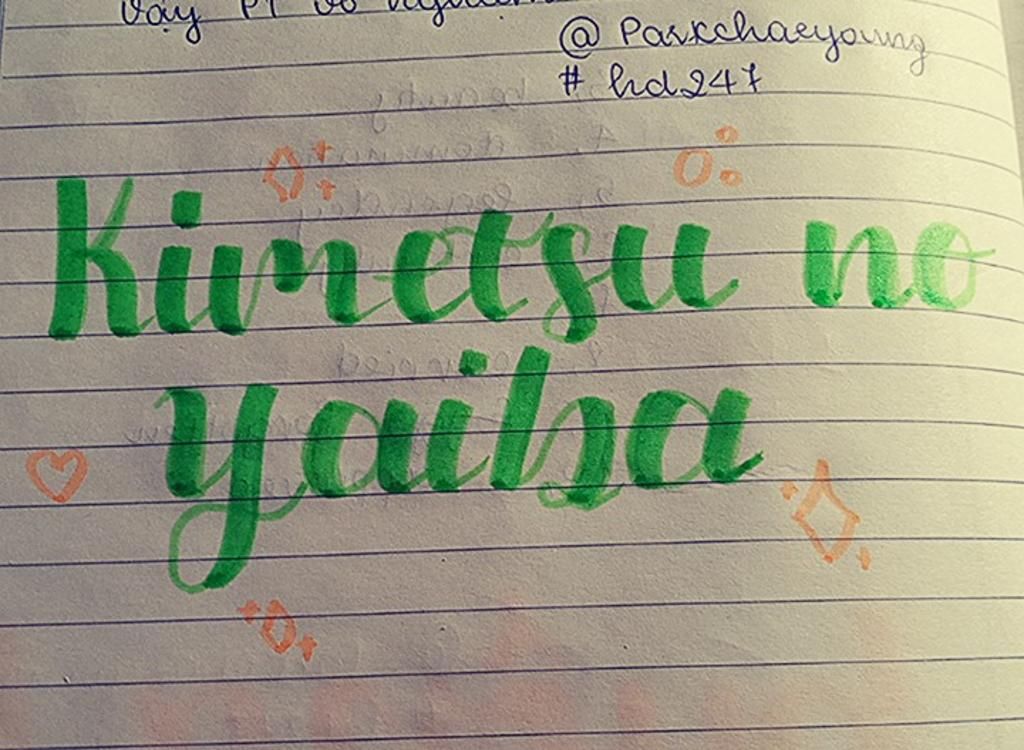 Vậy PT vô nghiệm
@ Parkchaeyoung
# hd247
Kimetsu no
yaiba